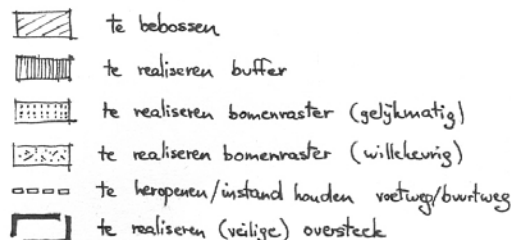 te bebossen
te realiseren buffer
te realiseren bomenraster (gelijkmatig)
te realiseren bomenraster (willekeurig)
te heropenen/instand houden voetweg/buurtweg
te realiseren (veilige) oversteek